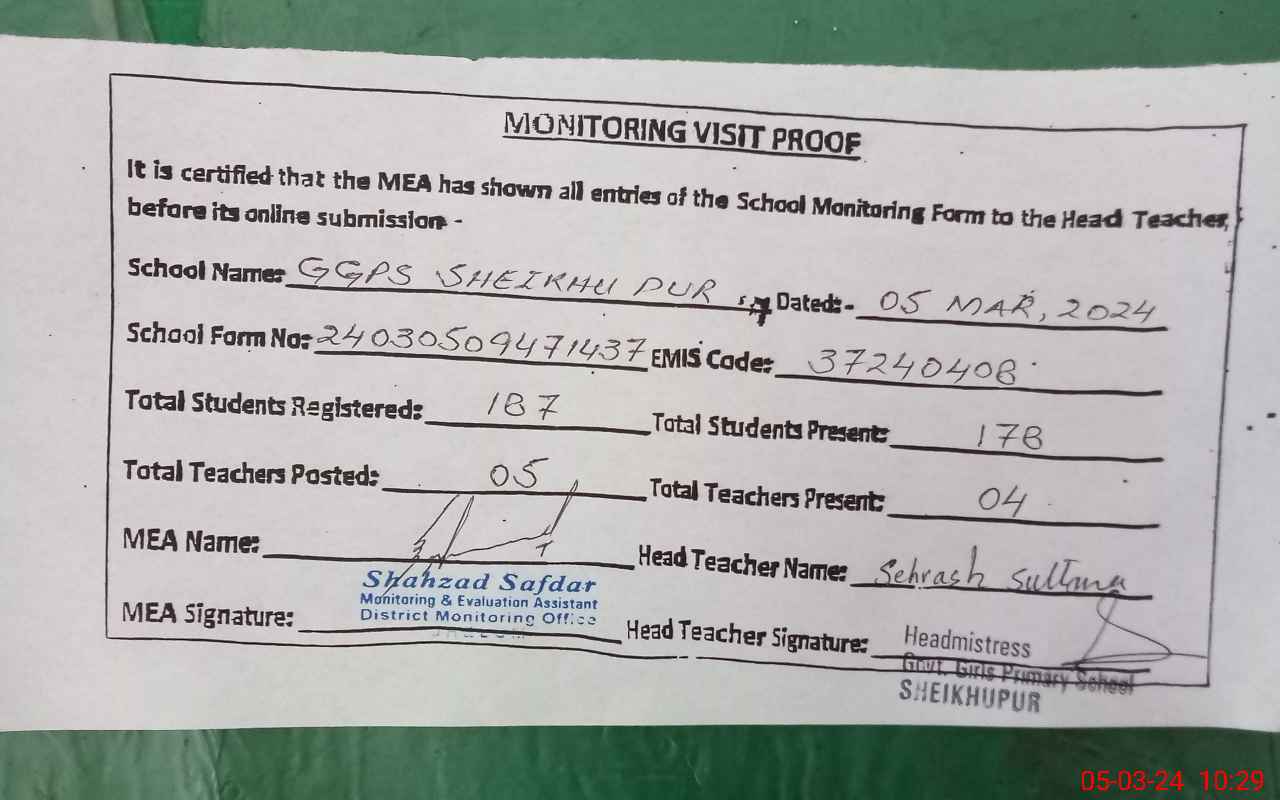 MONITORING VISIT PROOF
It is certified that the MEA has shown all entries of the School Monitoring Form to the Head Teacher,
before its online submission -
School Name: GGPS SHEIKHU PUR Dated:- 05 MAR, 2024
School Form No: 24030509471437 EMIS Code: 37240408
Total Students Registered: 187 Total Students Present: 178
Total Teachers Posted: 05 Total Teachers Present: 04
MEA Name: Head Teacher Name: Sehrash Sultana
Shahzad Safdar
Monitoring & Evaluation Assistant
District Monitoring Office
MEA Signature: Head Teacher Signature:
Headmistress
Govt. Girls Primary School
SHEIKHUPUR
05-03-24 10:29